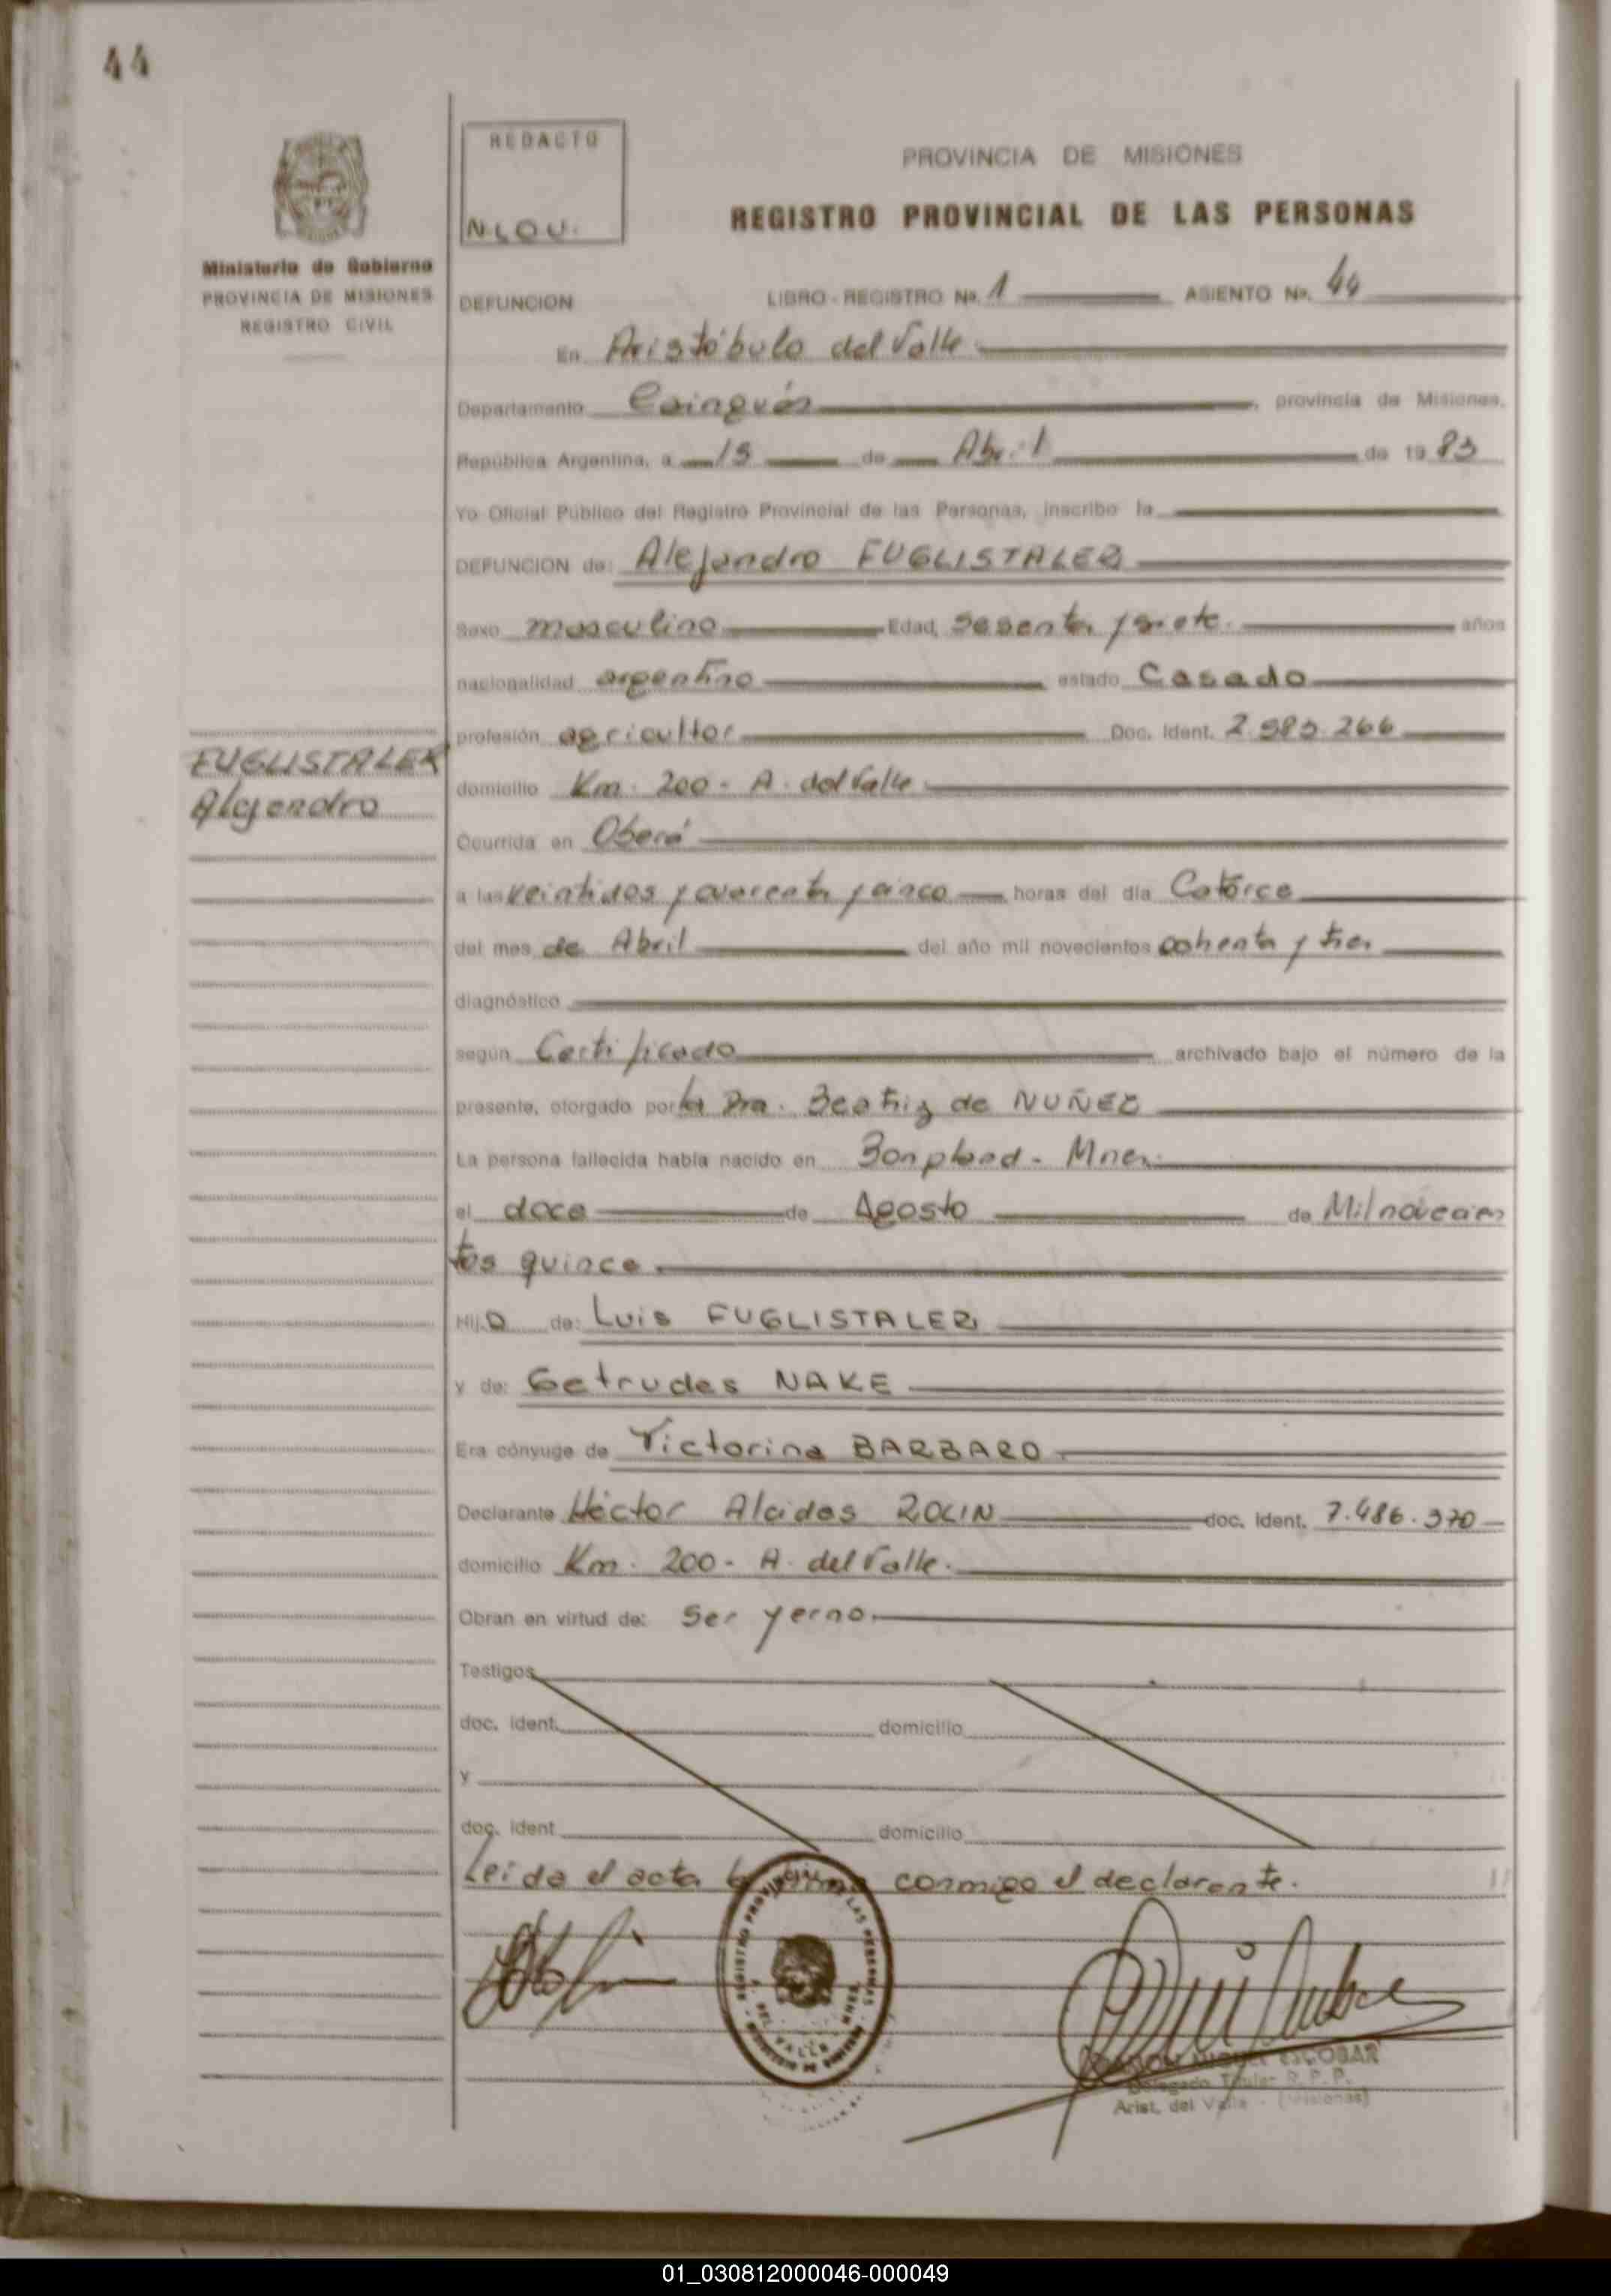 44
REDACTO
N.LOU.
Ministerio de Gobierno
PROVINCIA DE MISIONES
REGISTRO CIVIL
PROVINCIA DE MISIONES
REGISTRO PROVINCIAL DE LAS PERSONAS
DEFUNCION LIBRO - REGISTRO Nº. 1 ASIENTO Nº. 44
En Aristóbulo del Valle
Departamento Cainguás, provincia de Misiones,
República Argentina, a 15 de Abril de 1983
Yo Oficial Público del Registro Provincial de las Personas, inscribo la
DEFUNCION de: Alejandro FUGLISTALER
Sexo masculino Edad, sesenta y siete. años
nacionalidad argentino estado Casado
profesión agricultor Doc. Ident. 2.585.266
FUGLISTALER
Alejandro
domicilio Km. 200 - A. del Valle
Ocurrida en Oberá
a las veintidos y cuarenta y cinco horas del día Catorce
del mes de Abril del año mil novecientos ochenta y tres
diagnóstico
según Certificado archivado bajo el número de la
presente, otorgado por la Dra. Beatriz de NUÑEZ
La persona fallecida había nacido en Bonpland - Mnes.
el doce de Agosto de Mil novecien
tos quince.
Hijo de: Luis FUGLISTALER
y de: Getrudes NAKE
Era cónyuge de Victorina BARBARO
Declarante Héctor Alcides ROLIN doc. ident. 7.486.370
domicilio Km. 200 - A. del Valle.
Obran en virtud de: Ser yerno.
Testigos
doc. ident. domicilio
Y
doc. ident domicilio
Leida el acta la firma conmigo el declarante.
REGISTRO PROVINCIAL DE LAS PERSONAS
DEL VALLE MNES.
MIGUEL ESCOBAR
Delegado Titular R.P.P.
Arist. del Valle - (Misiones)
01_030812000046-000049